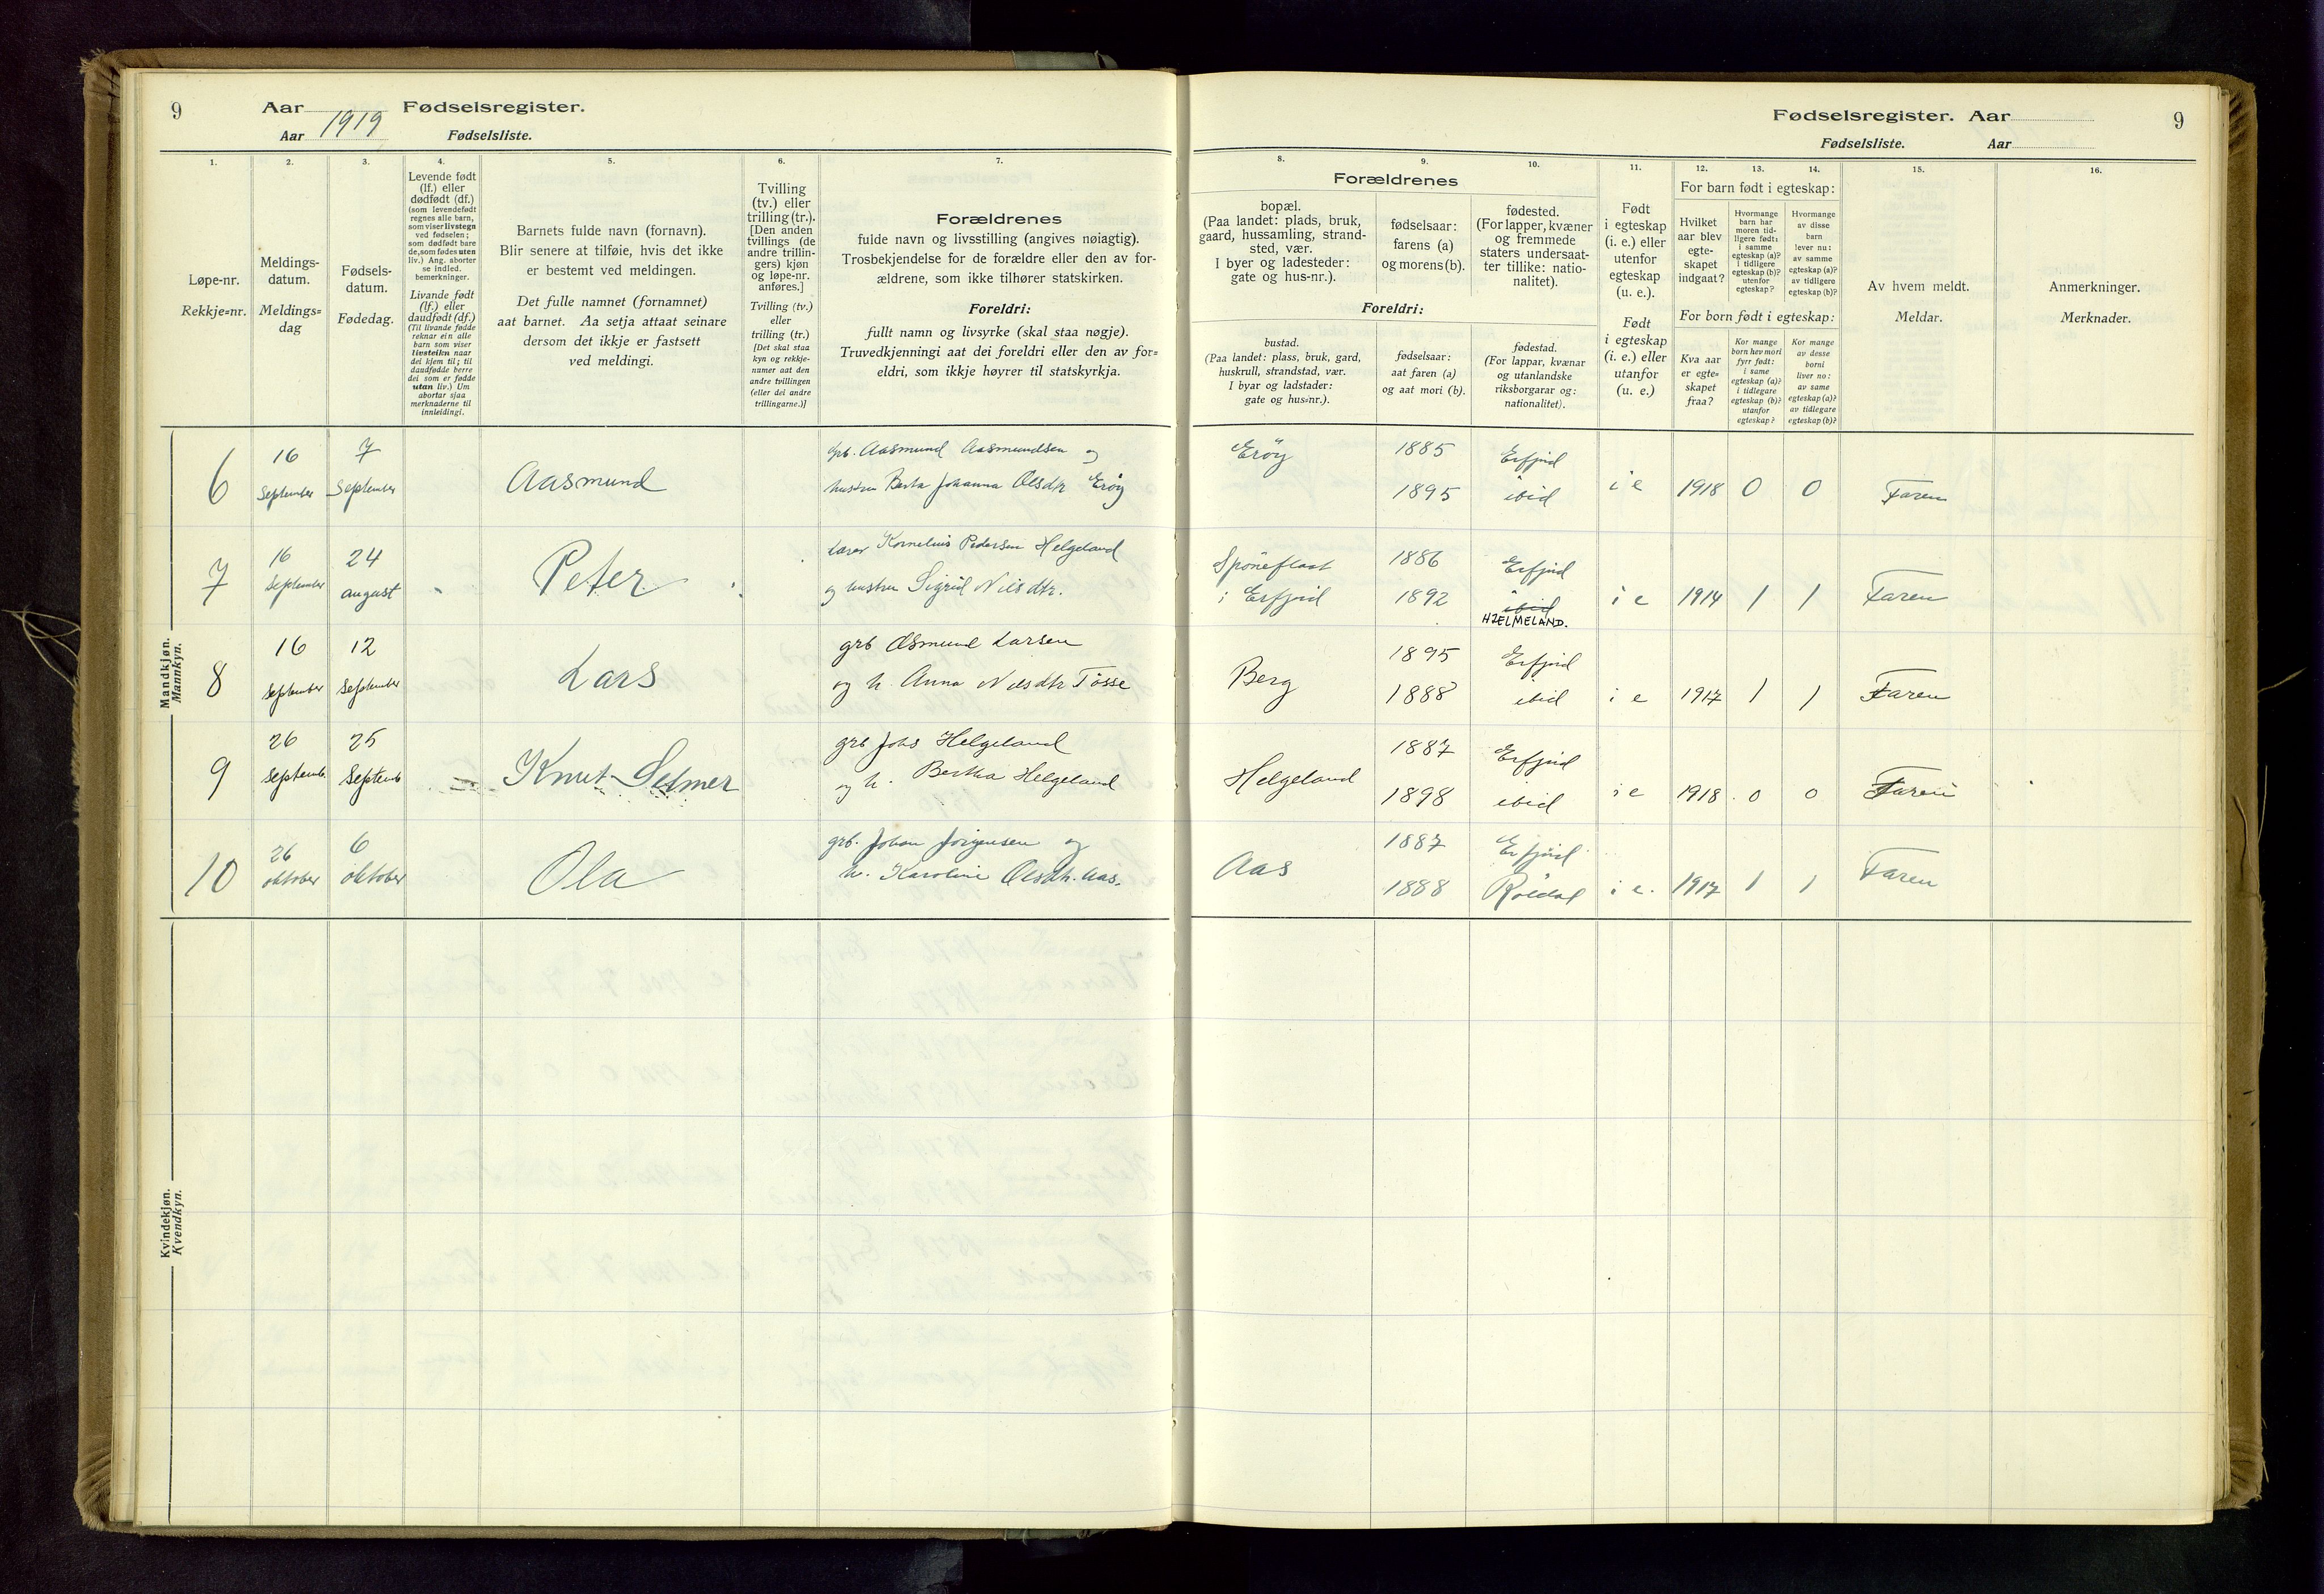 9 Aar 1919 Fødselsregister.
Aar Fødselsliste.
1. 2. 3. 4. 5. 6. 7.
Løpe-nr.
Rekkje=nr.
Meldings-
datum.
Meldings=
dag
Fødsels-
datum.
Fødedag.
Levende født
(lf.) eller
dødfødt (df.)
(som levendefødt
regnes alle barn,
som viser livstegn
ved fødselen;
som dødfødt bare
de, som fødes uten
liv.) Ang. aborter
se indled.
bemerkninger.
Livande født
(lf.) eller
daudfødt (df.)
(Til livande fødde
reknar ein alle
barn som viser
livsteikn naar
dei kjem til; til
daudfødde berre
dei som er fødde
uten liv.) Um
abortar sjaa
merknaderne til
innleidingi.
Barnets fulde navn (fornavn).
Blir senere at tilføie, hvis det ikke
er bestemt ved meldingen.
Det fulle namnet (fornamnet)
aat barnet. Aa setja attaat seinare
dersom det ikkje er fastsett
ved meldingi.
Tvilling
(tv.) eller
trilling (tr.).
[Den anden
tvillings (de
andre trillin-
gers) kjøn
og løpe-nr.
anføres.]
Tvilling (tv.)
eller
trilling (tr.)
[Det skal staa
kyn og rekkje-
numer aat den
andre tvillingen
(eller dei andre
trillingarne.)]
Forældrenes
fulde navn og livsstilling (angives nøiagtig).
Trosbekjendelse for de forældre eller den av for-
ældrene, som ikke tilhører statskirken.
Foreldri:
fullt namn og livsyrke (skal staa nøgje).
Truvedkjenningi aat dei foreldri eller den av for=
eldri, som ikkje høyrer til statskyrkja.
Mandkjøn.
Mannkyn.
6 16 September 7 September Aasmund
grb. Aasmund Aasmundsen og
hustru Berta Johanna Olsdtr Erøy
7 16 September 24 august Peter
Lærer Kornelius Pedersen Helgeland
og hustru Sigrid Nilsdtr.
8 16 september 12 September Lars
grb Osmund Larsen
og h. Anna Nilsdtr Tøsse
9 26 septemb. 25 Septemb Knut Selmer
grb Johs Helgeland
og h. Bertha Helgeland
10 26 oktober 6 oktober Ola
grb. Johan Jørgensen og
h. Karoline Olsdtr. Aas.
Kvindekjøn.
Kvendkyn.
Fødselsregister. Aar 9
Fødselsliste. Aar
8. 9. 10. 11. 12. 13. 14. 15. 16.
Forældrenes
bopæl.
(Paa landet: plads, bruk,
gaard, hussamling, strand-
sted, vær.
I byer og ladesteder:
gate og hus-nr.).
fødselsaar:
farens (a)
og morens (b).
fødested.
(For lapper, kvæner
og fremmede
staters undersaat-
ter tillike: natio-
nalitet).
Foreldri:
bustad.
(Paa landet: plass, bruk, gard,
huskrull, strandstad, vær.
I byar og ladstader:
gate og hus=nr.).
fødselsaar:
aat faren (a)
og aat mori (b).
fødestad.
(For lappar, kvænar
og utanlandske
riksborgarar og:
nationalitet).
Født
i egteskap
(i. e.) eller
utenfor
egteskap
(u. e.).
Født
i egteskap
(i. e.) eller
utanfor
(u. e.)
For barn født i egteskap:
Hvilket
aar blev
egte-
skapet
indgaat?
Hvormange
barn har
moren tid-
ligere født:
i samme
egteskap (a)?
i tidligere
egteskap (b)?
utenfor
egteskap?
Hvormange
av disse
barn
lever nu:
av samme
egteskap (a)?
av tidligere
egteskap (b)?
For born født i egteskap:
Kva aar
er egte=
skapet
fraa?
Kor mange
born hev mori
fyrr født:
i same
egteskap (a)?
i tidlegare
egteskap (b)?
utanfor
egteskap?
Kor mange
av desse
borni
liver no:
av same
egteskap (a)?
av tidlegare
egteskap (b)?
Av hvem meldt.
Meldar.
Anmerkninger.
Merknader.
Erøy 1885 Erfjord
1895 ibid i e 1918 0 0 Faren
Spøneflaat 1886 Erfjord
i Erfjord 1892 ibid i e 1914 1 1 Faren
HJELMELAND.
Berg 1895 Erfjord
1888 ibid i e 1917 1 1 Faren
Helgeland 1887 Erfjord
1898 ibid i e 1918 0 0 Faren
Aas 1887 Erfjord
1888 Røldal i e. 1917 1 1 Faren